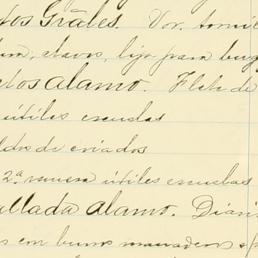 tos Gräles. Vor. tornil
clavos, lija para bug
tos alamo. Flete de
útiles escuelas
ldos de criados
2ª remesa útiles escuelas
llada alamo. Diari
s con burros manaderos